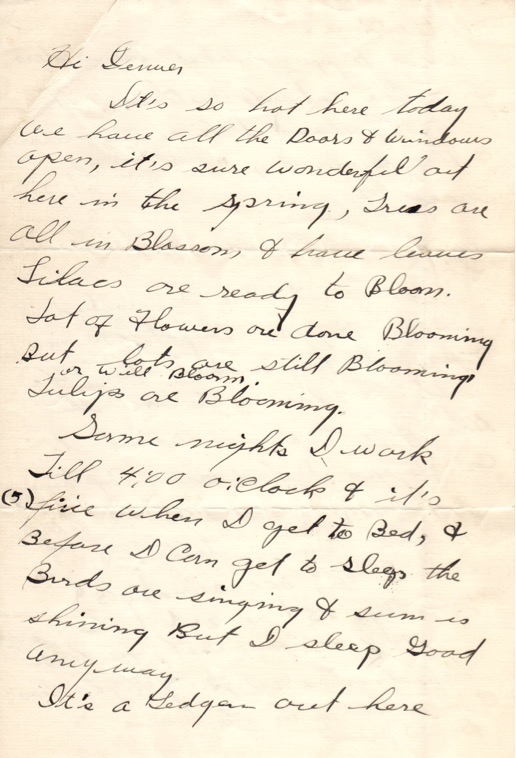 Hi Denver
It's so hot here today
we have all the Doors & windows
open, it's sure wonderful out
here in the Spring, Trees are
all in Blossom, & have leaves
Lilacs are ready to Bloom.
Lot of Flowers are done Blooming
But lots are still Blooming
or will Bloom,
Tulips are Blooming.
Some nights I work
Till 4:00 o'clock & it's
(5) five when I get to Bed, &
Before I can get to sleep the
Birds are singing & sun is
shining But I sleep Good
any way
It's a out here